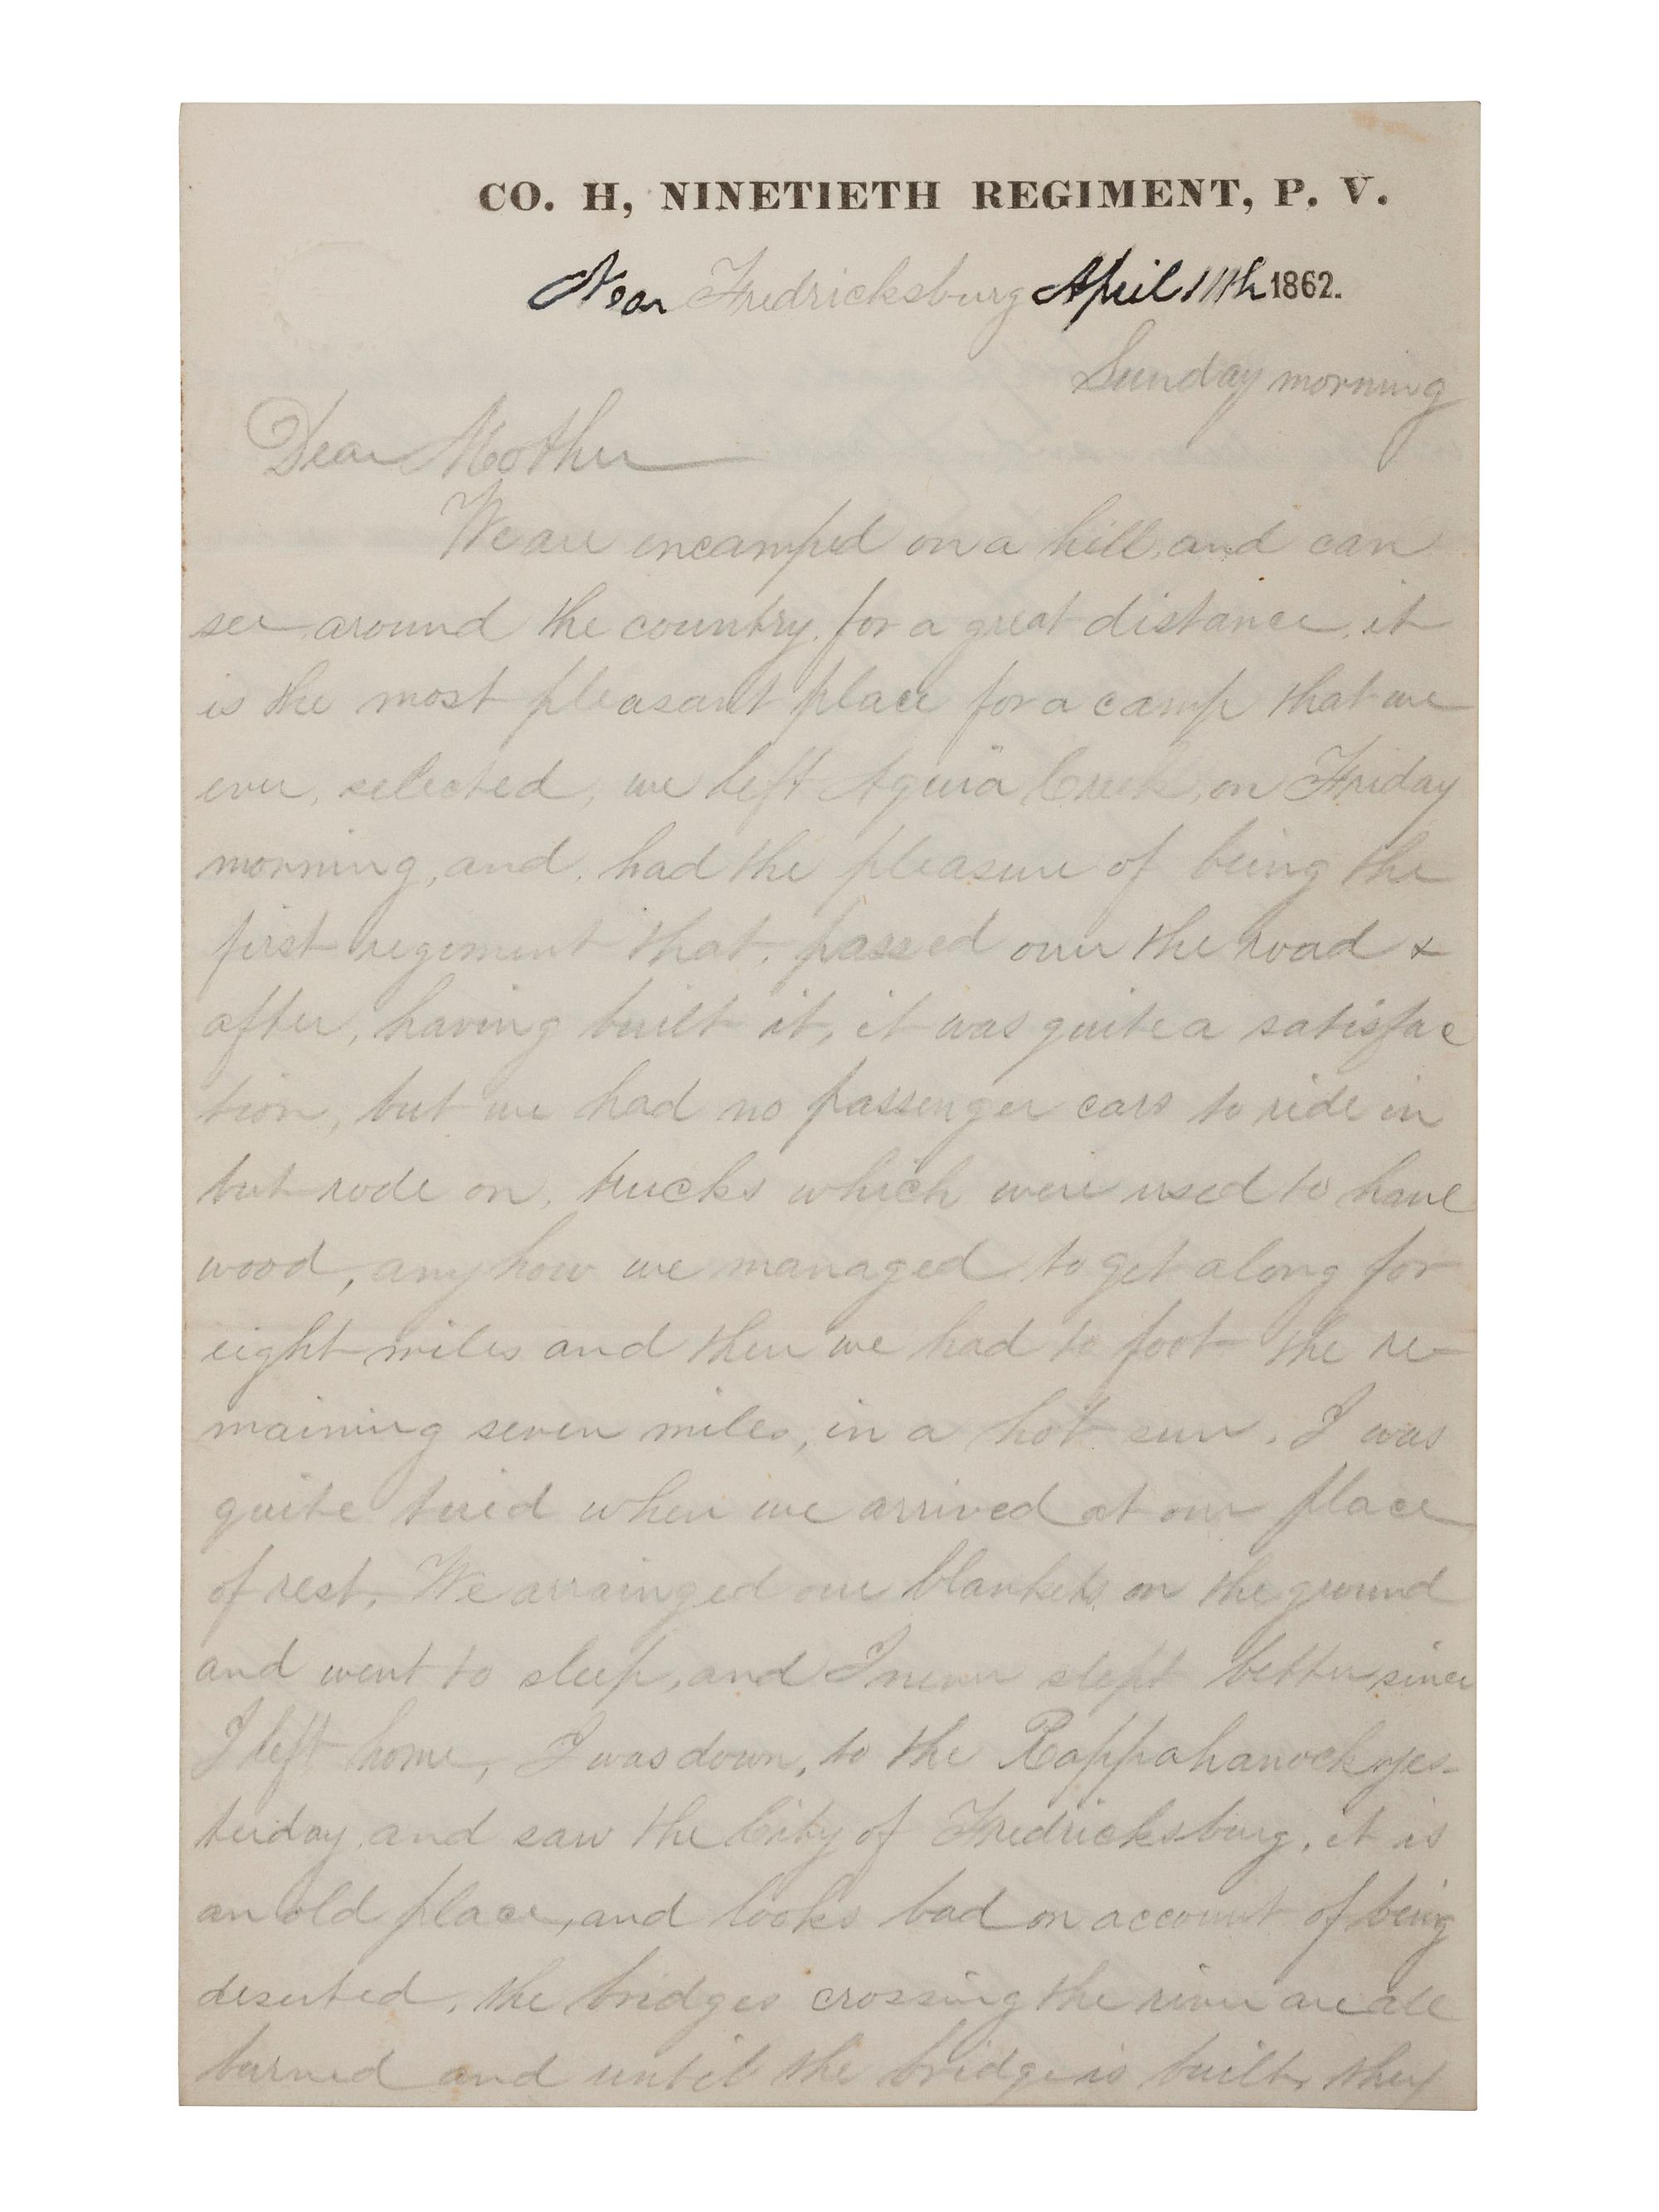 CO. H, NINETIETH REGIMENT, P. V.
Near Fredricksburg April 11th 1862.
Sunday morning
Dear Mother
We are encamped on a hill, and can
see around the country, for a great distance, it
is the most pleasant place for a camp that we
ever, selected, we left Aquia Creek, on Friday
morning, and, had the pleasure of being the
first regiment that, passed over the road &
after, having built it, it was quite a satisfac
tion, but we had no passenger cars to ride in
but rode on, trucks which were used to haul
wood, anyhow we managed to get along for
eight miles and then we had to foot the re-
maining seven miles, in a hot sun. I was
quite tired when we arrived at our place
of rest, We arrainged our blankets, on the ground
and went to sleep, and I never slept better, since
I left home, I was down, to the Rappahanock yes-
terday, and saw the City of Fredricksburg, it is
an old place, and looks bad on account of being
deserted, the bridges crossing the river are all
burned and until the bridge is built, they